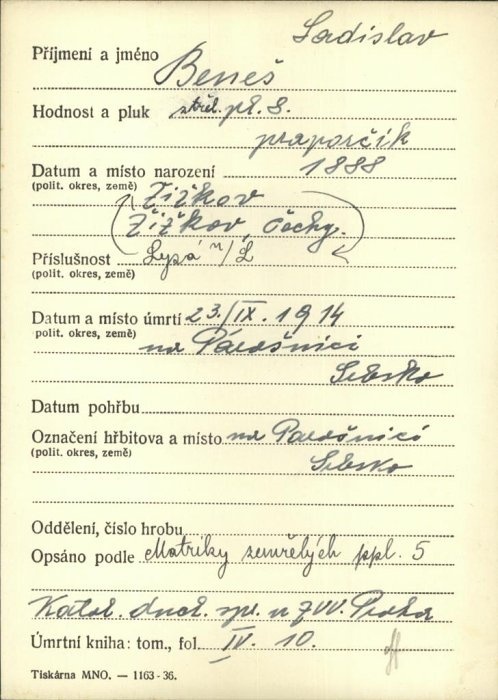 Ladislav
Příjmení a jméno Beneš
Hodnost a pluk střel. pl. 8.
praporčík
Datum a místo narození 1888
(polit. okres, země) Žižkov
Žižkov, Čechy.
Příslušnost Lysá n/L
(polit. okres, země)
Datum a místo úmrtí 23./IX. 1914
polit. okres, země) na Parašnici
Srbsko
Datum pohřbu
Označení hřbitova a místo na Parašnici
(polit. okres, země) Srbsko
Oddělení, číslo hrobu
Opsáno podle Matriky zemřelých ppl. 5
Katol. duch. spr. u ZVV. Praha
Úmrtní kniha: tom., fol. IV. 10.
Tiskárna MNO. — 1163-36.